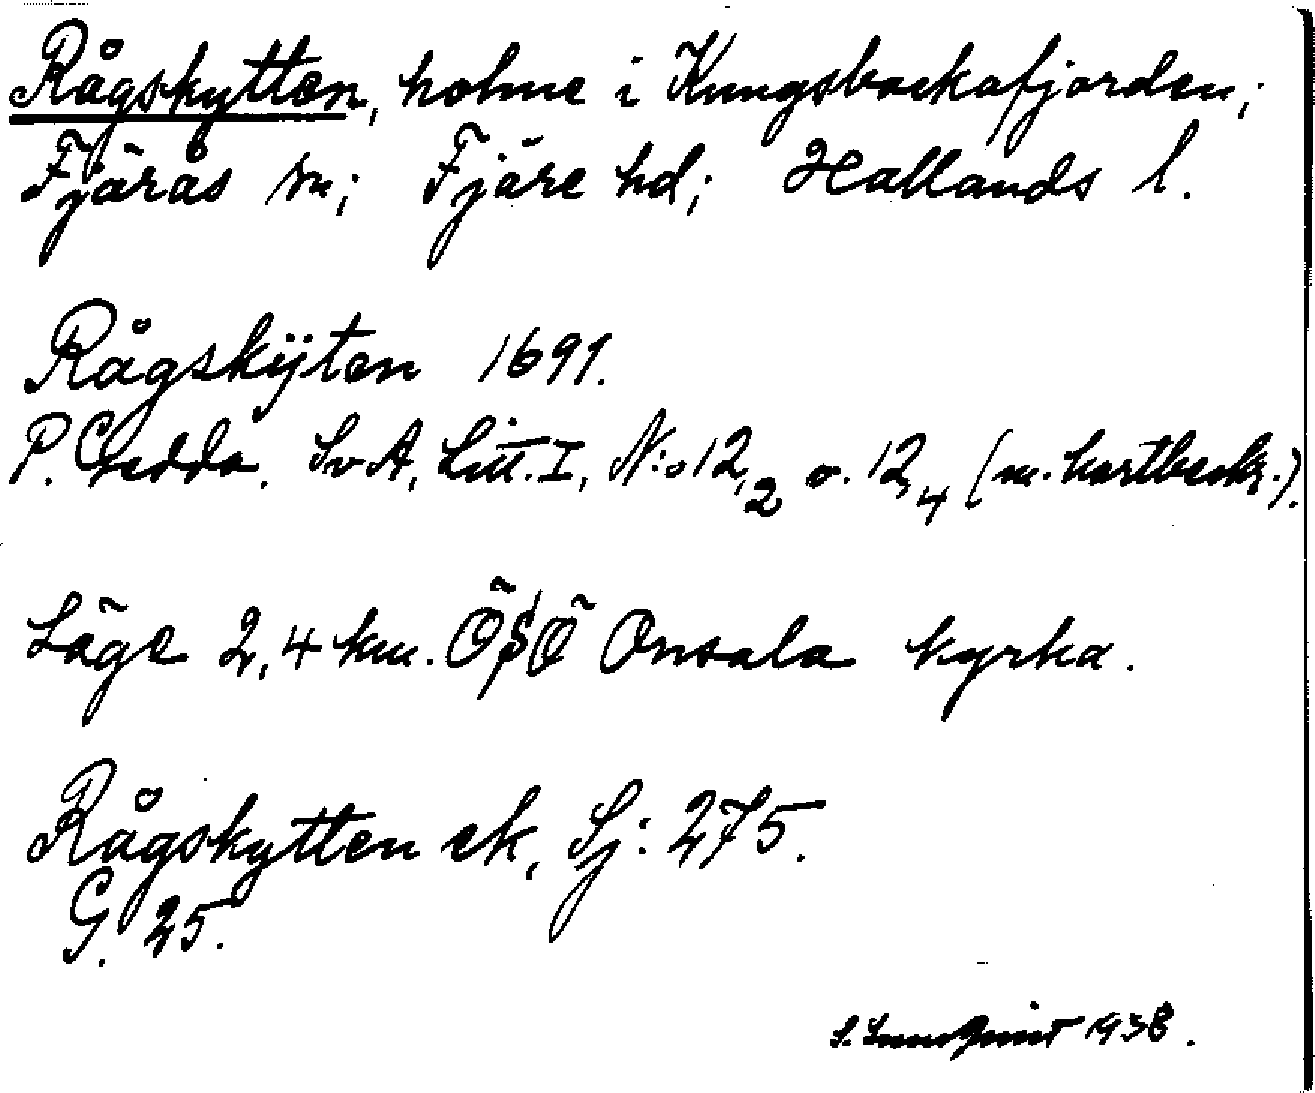 Rågskytten, holme i Kungsbackafjorden;
Fjärås sn; Fjäre hd; Hallands l.
Rågskÿten 1691.
P. Gedda. SvA, Litt. I, N:o 12,2 o. 12,4 (m. kartbeskr.).
Läge 2,4 km. ÖSÖ Onsala kyrka.
Rågskytten ek, Sj: 275.
G. 25.
1938.